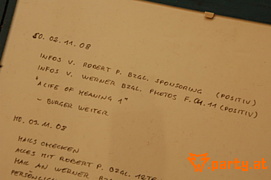 SO. 02.11.08
INFOS V. ROBERT P. BZGL. SPONSORING (POSITIV)
INFOS V. WERNER BZGL. PHOTOS F. 04.11 (POSITIV)
"A LIFE OF MEANING 1"
- BURGER WEITER
MO. 03.11.08
MAILS CHECKEN
ALLES MIT ROBERT P. BZGL.
MAIL AN WERNER
PERSÖNLICH
party.at